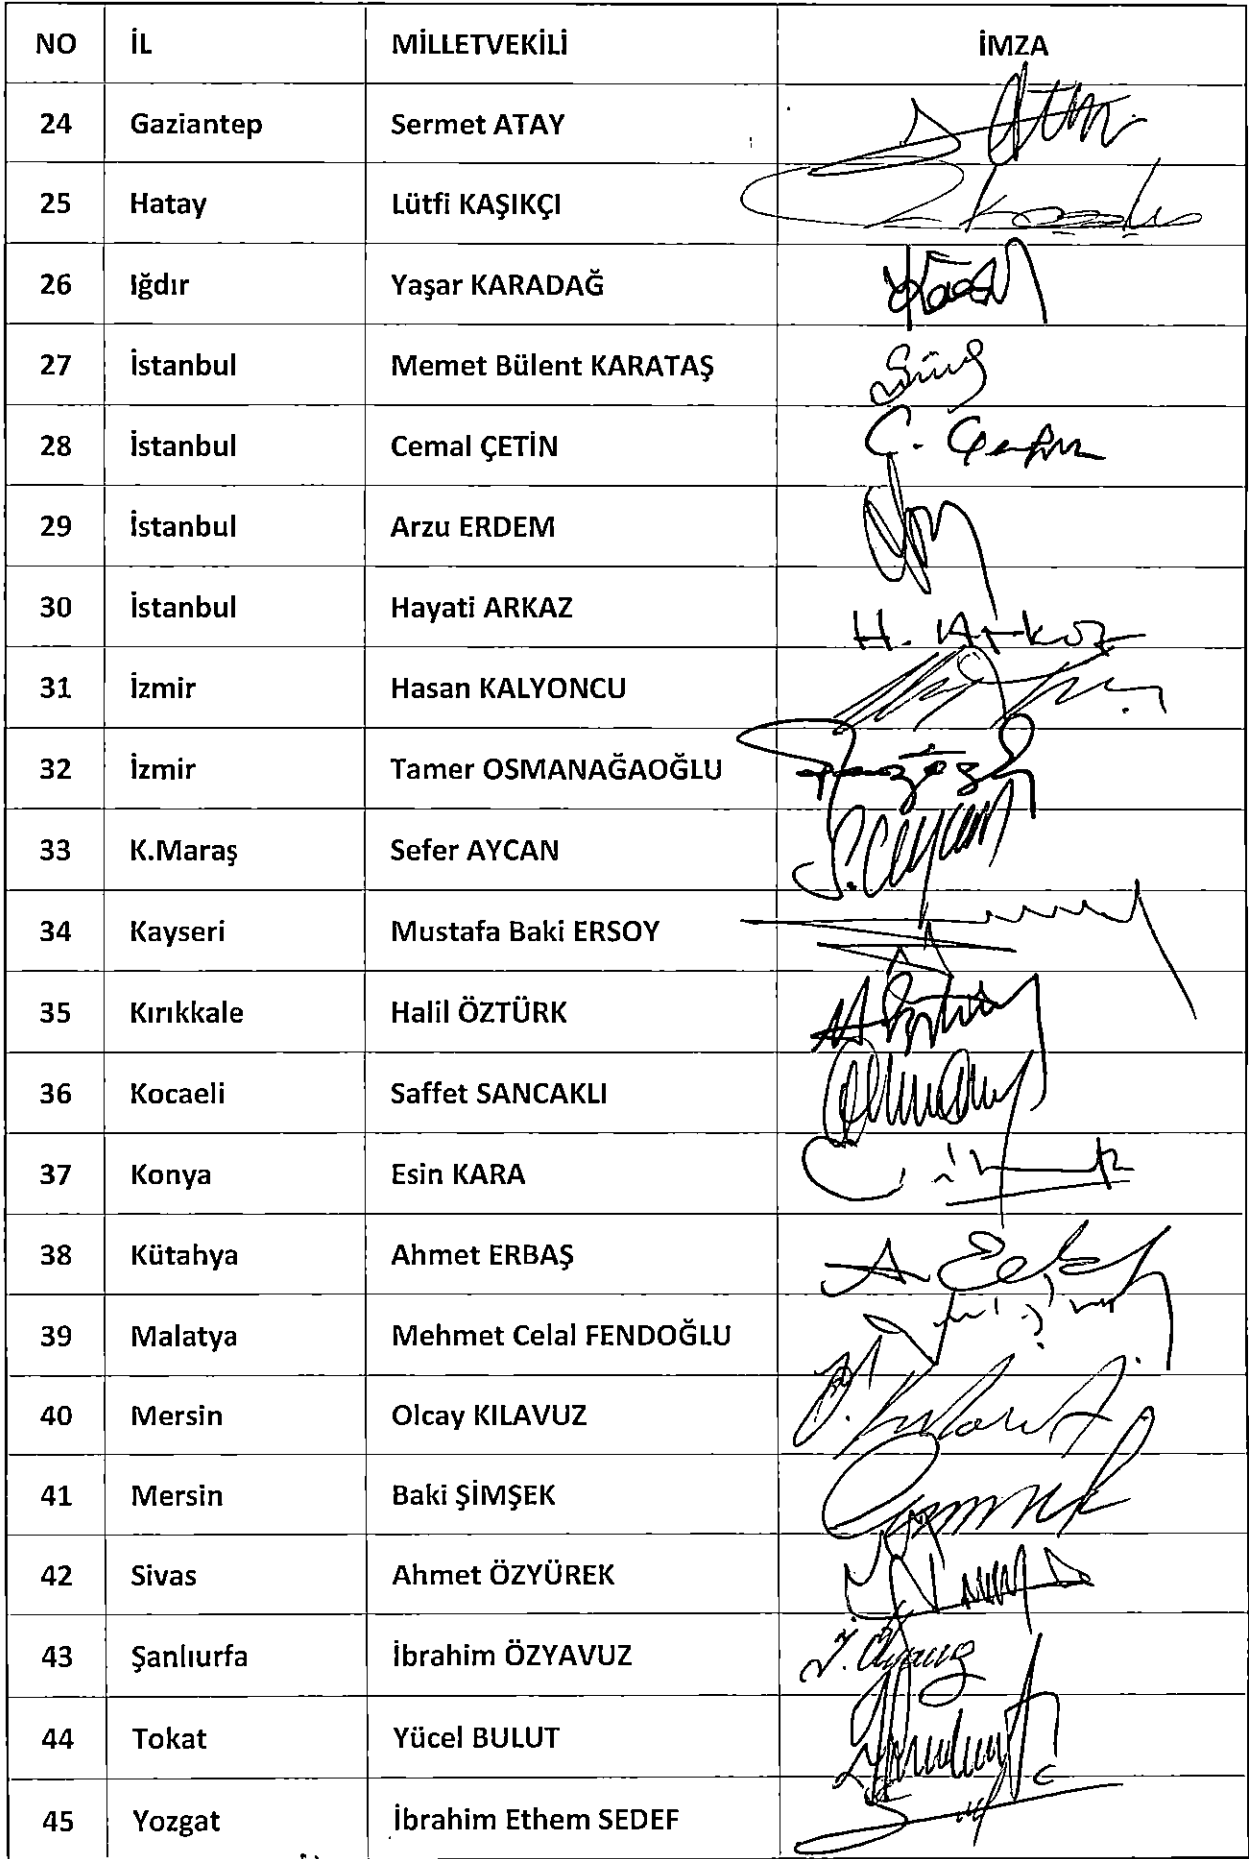 NO İL MİLLETVEKİLİ İMZA
24 Gaziantep Sermet ATAY
25 Hatay Lütfi KAŞIKÇI
26 Iğdır Yaşar KARADAĞ
27 İstanbul Memet Bülent KARATAŞ
28 İstanbul Cemal ÇETİN C. Çetin
29 İstanbul Arzu ERDEM
30 İstanbul Hayati ARKAZ H. Arkaz
31 İzmir Hasan KALYONCU
32 İzmir Tamer OSMANAĞAOĞLU
33 K.Maraş Sefer AYCAN S. Aycan
34 Kayseri Mustafa Baki ERSOY
35 Kırıkkale Halil ÖZTÜRK
36 Kocaeli Saffet SANCAKLI
37 Konya Esin KARA
38 Kütahya Ahmet ERBAŞ
39 Malatya Mehmet Celal FENDOĞLU
40 Mersin Olcay KILAVUZ
41 Mersin Baki ŞİMŞEK
42 Sivas Ahmet ÖZYÜREK
43 Şanlıurfa İbrahim ÖZYAVUZ
44 Tokat Yücel BULUT
45 Yozgat İbrahim Ethem SEDEF